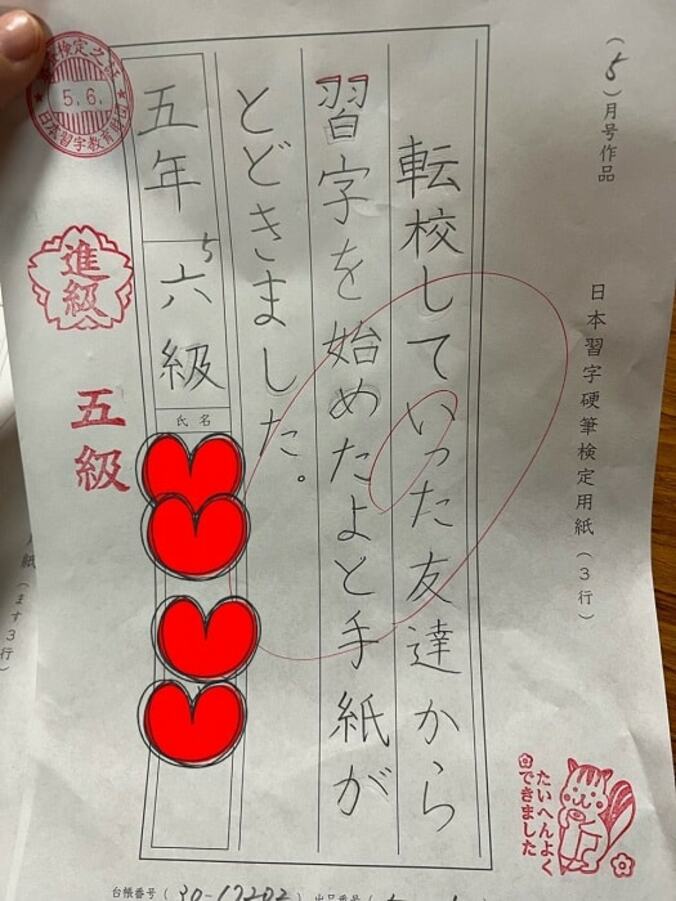 (5)月号作品
日本習字硬筆検定用紙(3行)
転校していった友達から
習字を始めたよと手紙が
とどきました。
五年 六級
5
氏名
5.6.
日本習字教育財団
進級
五級
たいへんよく
できました
台帳番号(30-17202)
紙(ます3行)